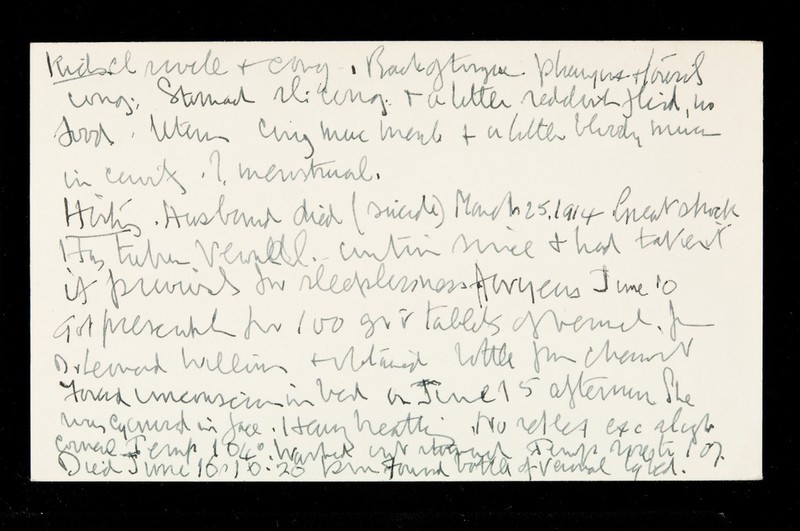 Kids. Cl & cong. Back of tongue. pharynx +
cong. Stomach sli cong. + a little reddish fluid, no
food. Uterus Cong muc memb + a little bloody mucus
in cavity. ? menstrual.
History. Husband died (suicide) March 25. 1914 Great shock
Has taken Veronal contin since + had taken it
previously for sleeplessness for years June 10
Got prescription for 100 gr v tablets of veronal. from
Dr Leonard Williams + obtained bottle from chemist
Found unconscious in bed on June 15 afternoon She
was cyanosed in face. Heavy breathing. No reflex exc slight
corneal Temp 104° Washed out stomach Temp rose to 107.
Died June 16. 10.20 pm Found bottle of veronal by bed.